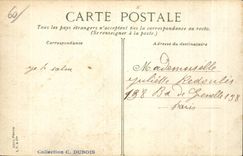 CARTE POSTALE
Tous les pays étrangers n'acceptent pas la correspondance au recto.
(Se renseigner à la poste)
Correspondance
Adresse du destinataire
Mademoiselle
Juliette
138 Bd de Grenelle 138
Paris
Collection C. DUBOIS